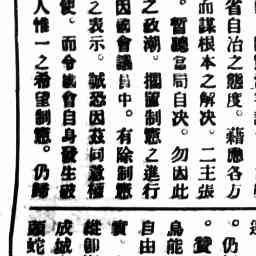 省自治之態度。藉應各方
而謀根本之解决。二主張
。暫聽當局自决。勿因此
之政潮。擱置制憲之進行
因國會議員中。有除制憲
之表示。誠恐因茲問題
使。而令議會自身發生破
人惟一之希望制憲。仍歸
。仍
。贊
鳥能
自由
實。
縱卽
成城
頭蛇